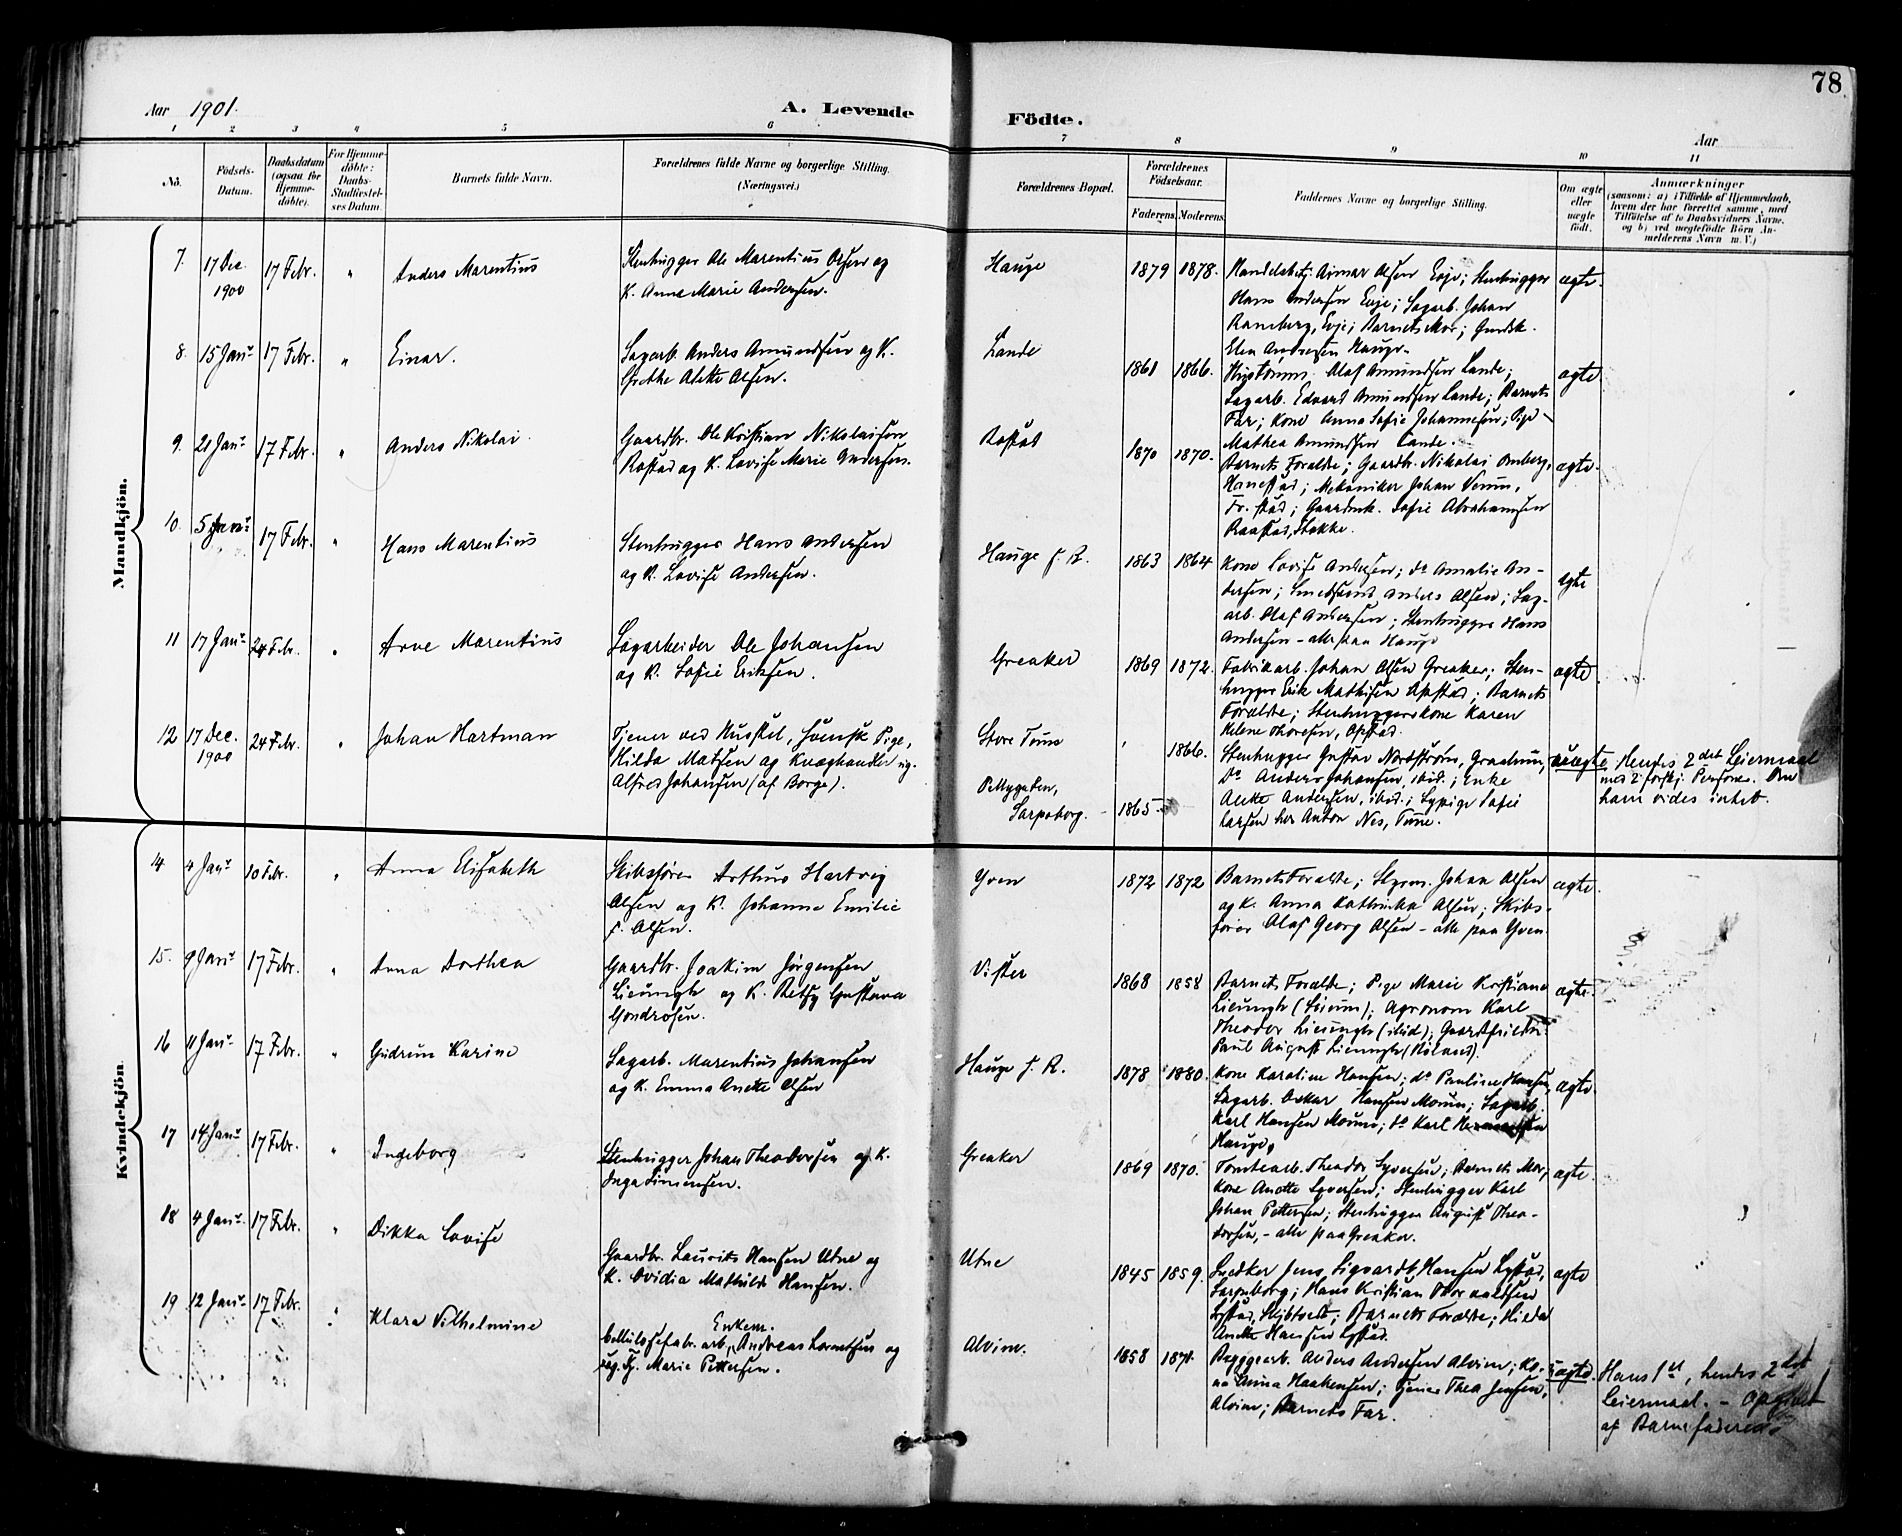 78
Aar 1901.
A. Levende Födte.
Aar
1 2 3 4 5 6 7 8 9 10 11
No.
Födsels-Datum.
Daabsdatum (ogsaa for Hjemme-döbte).
For Hjemme-döbte: Daabs-Stadfæstel-ses Datum.
Barnets fulde Navn.
Forældrenes fulde Navne og borgerlige Stilling. (Næringsvei.)
Forældrenes Bopæl.
Forældrenes Födselsaar.
Faderens. Moderens.
Faddernes Navne og borgerlige Stilling.
Om ægte eller uægte födt.
Anmærkninger
(saasom: a) i Tilfælde af Hjemmedaab, hvem der har forrettet samme, med Tilföielse af to Daabsvidners Navne, og b) ved uægtefödte Börn Anmelderens Navn m. V.)
Mandkjön.
7. 17 Dec. 1900 17 Febr. " Anders Marentius
Stenhugger Ole Marentius Olsen og
K. Anna Marie Andersen.
Hauge 1879 1878.
Handelsbetj. Ajmar Olsen Evje; Stenhugger
Hans Andersen Evje; Sagarb. Johan
Ramberg, Evje; Barnets Mor; Gmdsk.
Elen Andresen Hauge.
ægte.
8. 15 Janr 17 Febr. " Einar.
Sagarb. Anders Amundsen og K.
Grethe Alette Olsen.
Lande 1861 1866.
Olaf Amundsen Lande;
Sagarb. Edvard Amundsen Lande; Barnets
Far; Kone Anna Sofie Johannesen; Pige
Mathea Amundsen Lande.
ægte.
9. 21 Janr 17 Febr. " Anders Nikolai
Gaardbr. Ole Kristian Nikolaisen
Rostad og K. Lovise Marie Andersen.
Rostad 1870 1870.
Barnets Forældre; Gaardbr. Nikolai Omberg,
Hanestad; Mekaniker Johan Venum,
Fr.stad; Gaardmk. Sofie Abrahamsen
Raastad, Stokke.
ægte.
10. 5 Janr 17 Febr. " Hans Marentius
Stenhugger Hans Andersen
og K. Lovise Andersen.
Hauge f. R. 1863 1864
Kone Lovise Andersen; do Amalie An-
dersen; Smedsvend Anders Olsen; Sag-
arb. Olaf Andersen; Stenhugger Hans
Andersen - alle paa Hauge
ægte
11 17 Janr 24 Febr. " Arve Marentius
Sagarbeider Ole Johansen
og K. Sofie Eriksen.
Greaker 1869 1872.
Fabrikarb. Johan Olsen Greaker; Sten-
hugger Erik Mathisen Opstad; Barnets
Forældre; Stenhuggerskone Karen
Helene Thoresen, Opstad.
ægte.
12 17 Dec. 1900 24 Febr. " Johan Hartman
Tjener ved Husstel, svensk Pige,
Hilda Matsen og Kvæghandler ug.
Alfred Johansen (af Borge).
Store Tune
Pettygaten,
Sarpsborg. 1865 1866.
Stenhugger Gustav Nordstrøm, Graalum,
Do Anders Johansen, ibid.; Enke
Alette Andersen, ibid.; Sypige Sofie
Larsen hos Anton Nes, Tune.
uægte Hendes 2det Leiermaal
med 2 forskj. Personer. Om
ham vides intet.
Kvindekjön.
14 4 Janr 10 Febr. " Anna Elisabeth
Skibsfører Arthur Hartvig
Olsen og K. Johanne Emilie
f. Olsen.
Yven 1872 1872
Barnets Forældre; Styrm. Johan Olsen
og K. Anna Kathinka Olsen; Skibs-
fører Olaf Georg Olsen - alle paa Yven.
ægte.
15. 9 Janr 17 Febr. " Anna Dorthea
Gaardbr. Joakim Jørgensen
Lieungh og K. Betsy Gustava
Gondrosen.
Vister 1868 1858
Barnets Forældre; Pige Marie Kristiane
Lieungh; Agronom Karl
Theodor Lieungh (ibid); Gaardfrieier
Paul August Lieungh (Röland).
ægte.
16 11 Janr 17 Febr. " Gudrun Karine
Sagarb. Marentius Johansen
og K. Emma Anette Olsen
Hauge f. R. 1878 1880.
Kone Karoline Hansen; do Pauline Hansen,
Sagarb. Oskar Hansen Moum; Sagarb.
Karl Hansen Moum; do Karl Hermansen
Hauge,
ægte.
17 14 Janr 17 Febr. " Ingeborg
Stenhugger Johan Theodorsen og K.
Inga Simensen.
Greaker 1869 1870.
Tomtearb. Theodor Syversen; Barnets Mor;
Kone Anette Syversen; Stenhugger Karl
Johan Pettersen; Stenhugger August Theo-
dorsen, - alle paa Greaker.
ægte.
18 4 Janr. 17 Febr. " Dikka Lovise
Gaardbr. Laurits Hansen Utne og
K. Ovidia Mathilde Hansen.
Utne 1845 1859.
Snedker Jens Sigvardt Hansen Lystad,
Sarpsborg; Hans Kristian Thorvaldsen
Lystad, Skibtvedt; Barnets Forældre; Hilda
Anette Hansen Lystad.
ægte
19 12 Janr 17 Febr. " Klara Vilhelmine
Cellulosefabr.arb., Enkem. Andreas Lorentsen og
ug. Tj. Marie Pettersen.
Alvim. 1858 1871.
Bryggearb. Anders Andersen Alvim; Ko-
ne Anna Haakensen; Tjener Thea Jensen,
Alvim; Barnets Far.
uægte. Hans 1st, hendes 2det
Leiermaal. - Opgivet
af Barnefaderen.